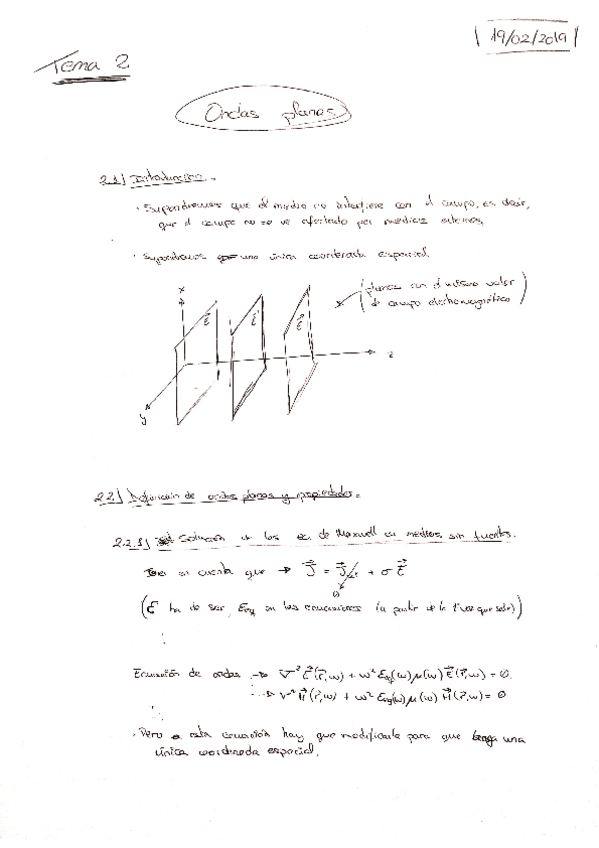 19/02/2019
Tema 2
Ondas planas
2.1) Introducción.
· Supondremos que el medio no interfiere con el campo, es decir,
que el campo no se ve afectado por medios externos.
· Supondremos una única coordenada espacial.
x
(planos con el mismo valor
de campo electromagnético)
E E E
z
y
2.2) Definición de ondas planas y propiedades.
2.2.1) Solución de las ec. de Maxwell en medios sin fuentes.
en cuenta que → J = J + σ E
0
(E ha de ser Eeq en las ecuaciones (a partir de la 1ª vez que sale))
Ecuación de ondas → ∇² E(r,ω) + ω² εeq(ω) μ(ω) E(r,ω) = 0.
→ ∇² H(r,ω) + ω² εeq(ω) μ(ω) H(r,ω) = 0
· Pero a esta ecuación hay que modificarla para que tenga una
única coordenada espacial.